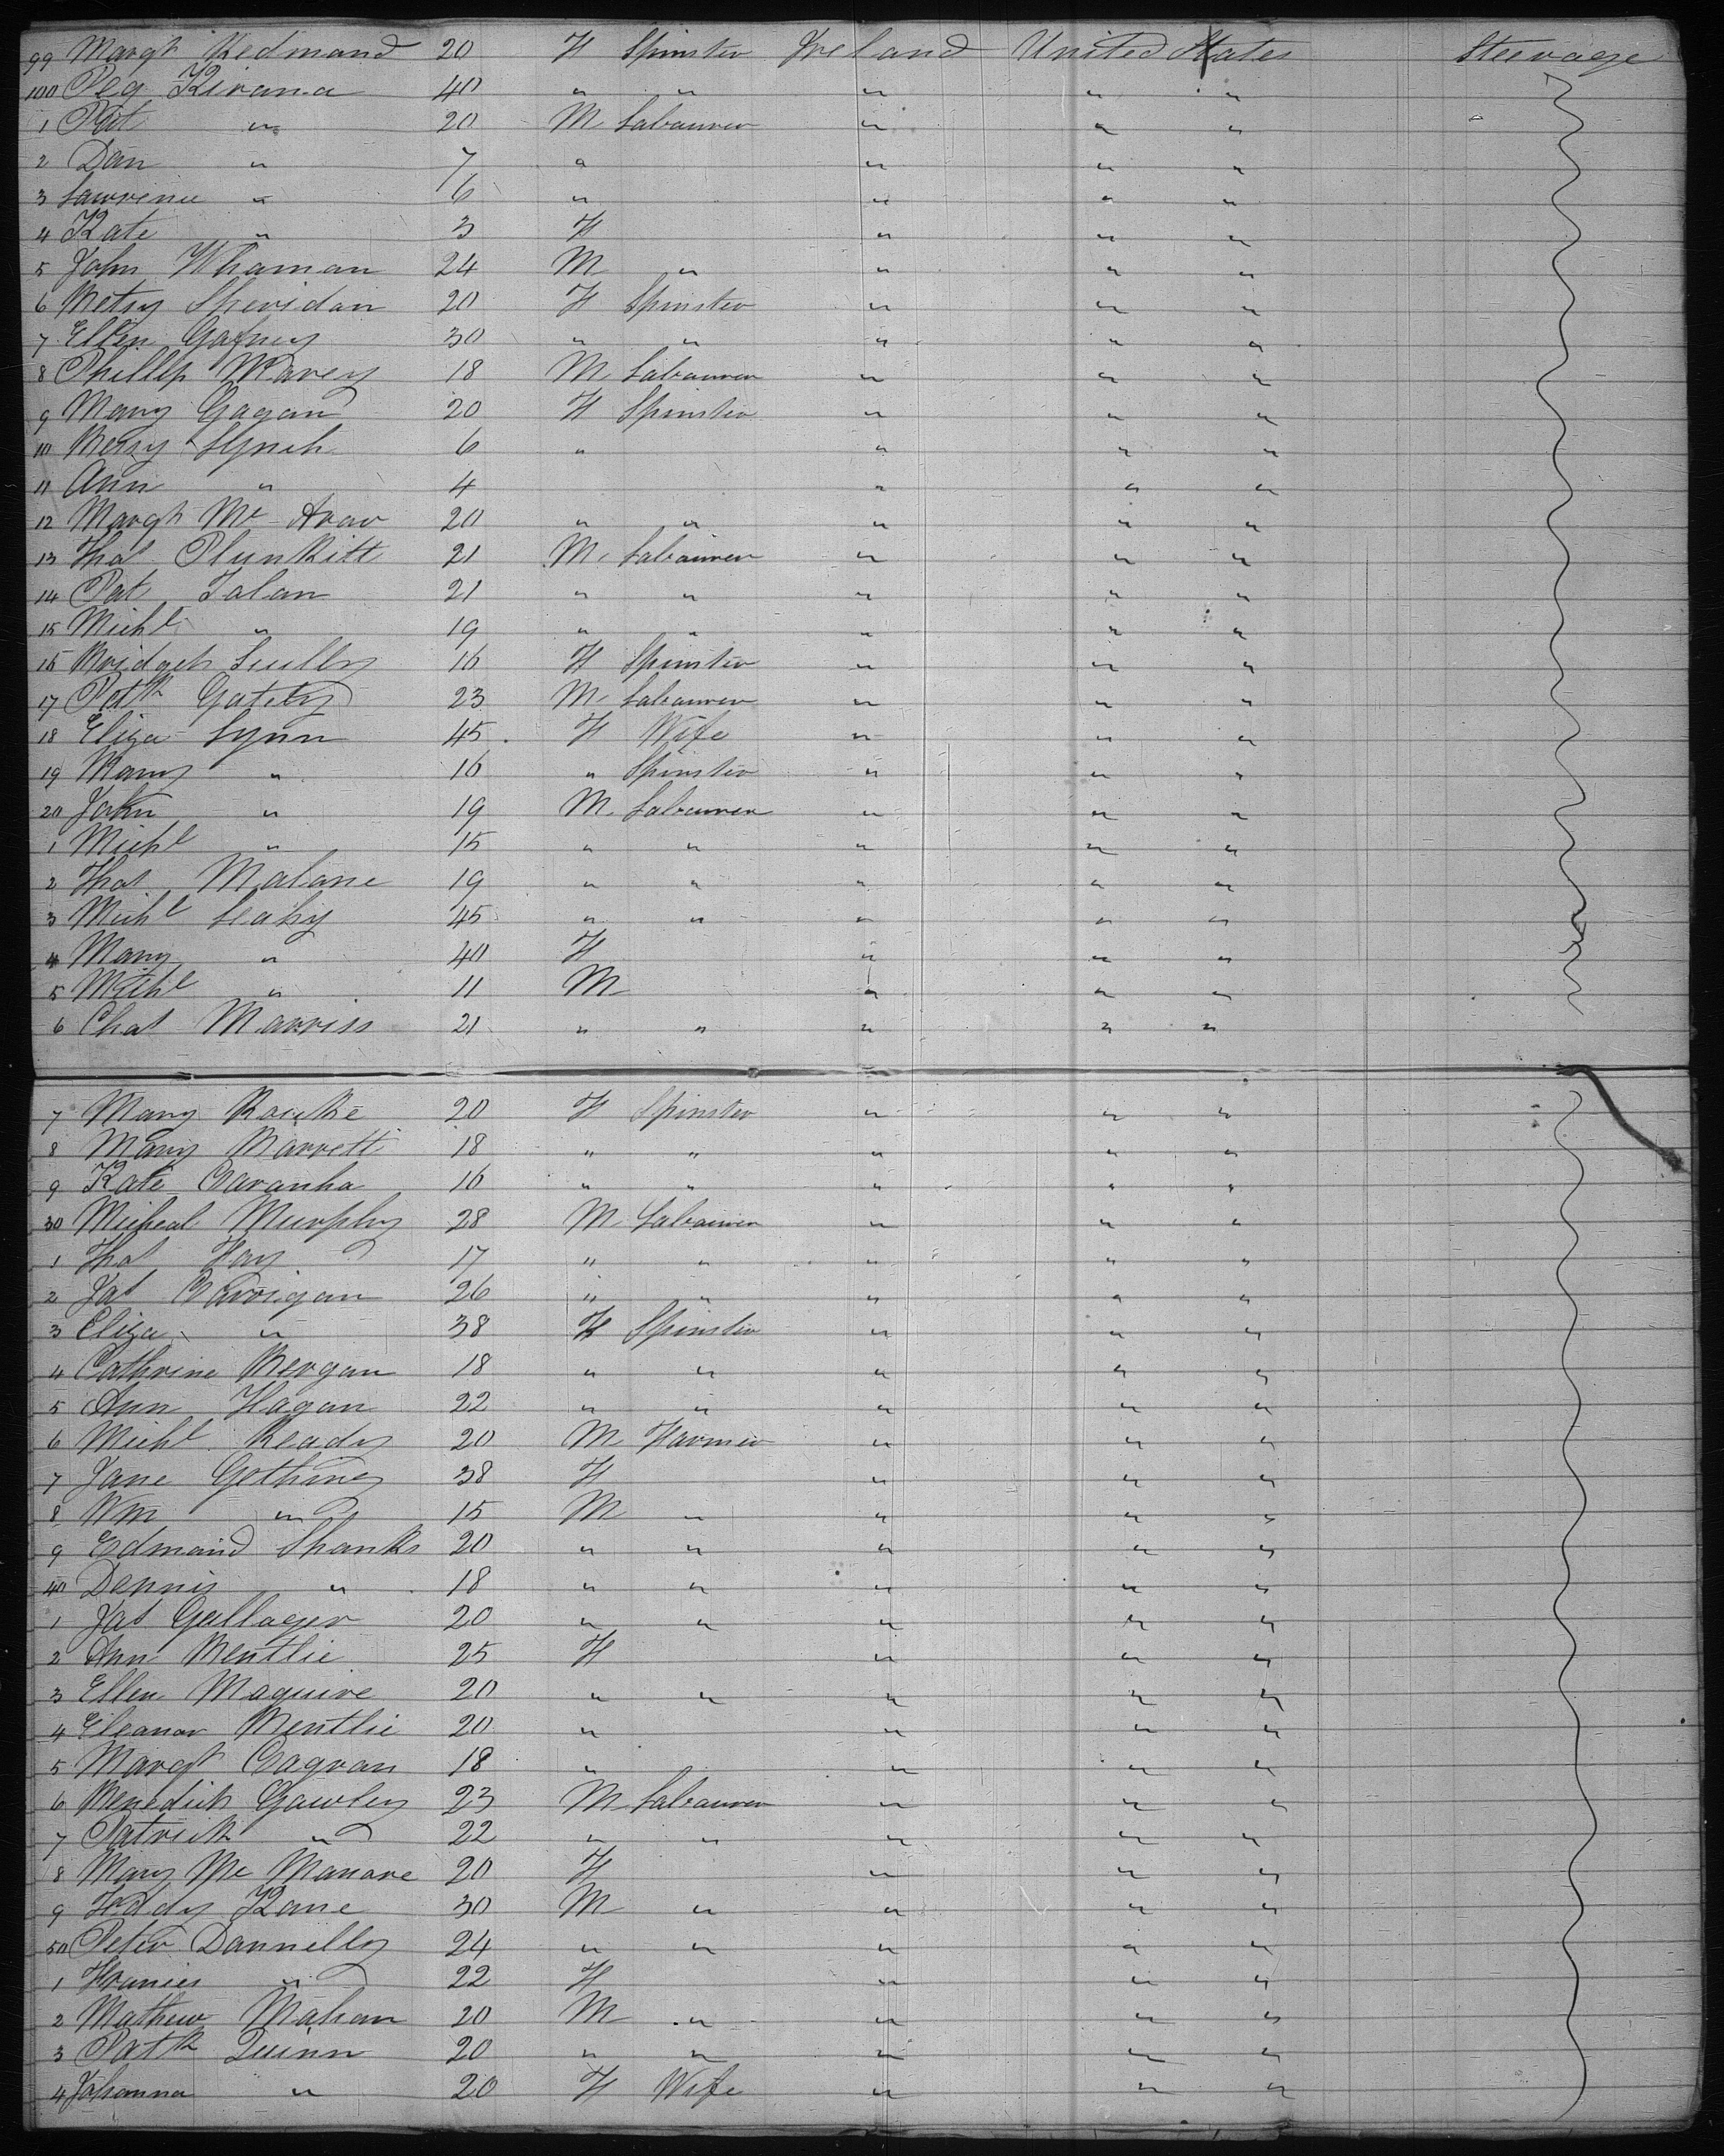 99 Margt Redmond 20 F Spinster Ireland United States Steerage
100 Peg Kirana 40 " " " " "
1 Pat " 20 M Labourer " " "
2 Dan " 7 " " " "
3 Lawrence " 6 " " " "
4 Kate " 3 F " " "
5 John Whaman 24 M " " " "
6 Betsy Sheridan 20 F Spinster " " "
7 Ellen Gafney 30 " " " " "
8 Phillip Davey 18 M Labourer " " "
9 Mary Gagan 20 F Spinster " " "
10 Betsy Lynch 6 " " " "
11 Ann " 4 " " "
12 Margt Mc 20 " " " " "
13 Thos Plunkitt 21 M Labourer " " "
14 Pat Tolan 21 " " " " "
15 Michl " 19 " " " " "
16 Bridget Scully 16 F Spinster " " "
17 Patk Gately 23 M Labourer " " "
18 Eliza Lynn 45 F Wife " " "
19 Mary " 16 " Spinster " " "
20 John " 19 M Labourer " " "
1 Michl " 15 " " " " "
2 Thos Malone 19 " " " " "
3 Michl Leahy 45 " " " " "
4 Mary " 40 F " " "
5 Michl " 11 M " " "
6 Chas Morriss 21 " " " " "
7 Mary Rourke 20 F Spinster " " "
8 Mary Barrett 18 " " " " "
9 Kate Caranha 16 " " " " "
30 Micheal Murphy 28 M Labourer " " "
1 Thos Hay 17 " " " " "
2 Jas Carrigan 26 " " " " "
3 Eliza " 38 F Spinster " " "
4 Cathrine Bergan 18 " " " " "
5 Ann Hagan 22 " " " " "
6 Michl Ready 20 M Farmer " " "
7 Jane Gothing 38 F " " "
8 Wm " 15 M " " " "
9 Edmond Shanks 20 " " " " "
40 Dennis " 18 " " " " "
1 Jas Gallager 20 " " " " "
2 Ann Bentlie 25 F " " "
3 Ellen Maguire 20 " " " " "
4 Eleanor Bentlie 20 " " " "
5 Margt Cagran 18 " " " "
6 Benedict Gawley 23 M Labourer " " "
7 Patrick " 22 " " " " "
8 Mary Mc Manore 20 F " " "
9 Kane 30 M " " " "
50 Peter Donnelly 24 " " " " "
1 Frances " 22 F " " "
2 Mathew Mahon 20 M " " " "
3 Patk Quinn 20 " " " " "
4 Johanna " 20 F Wife " " "